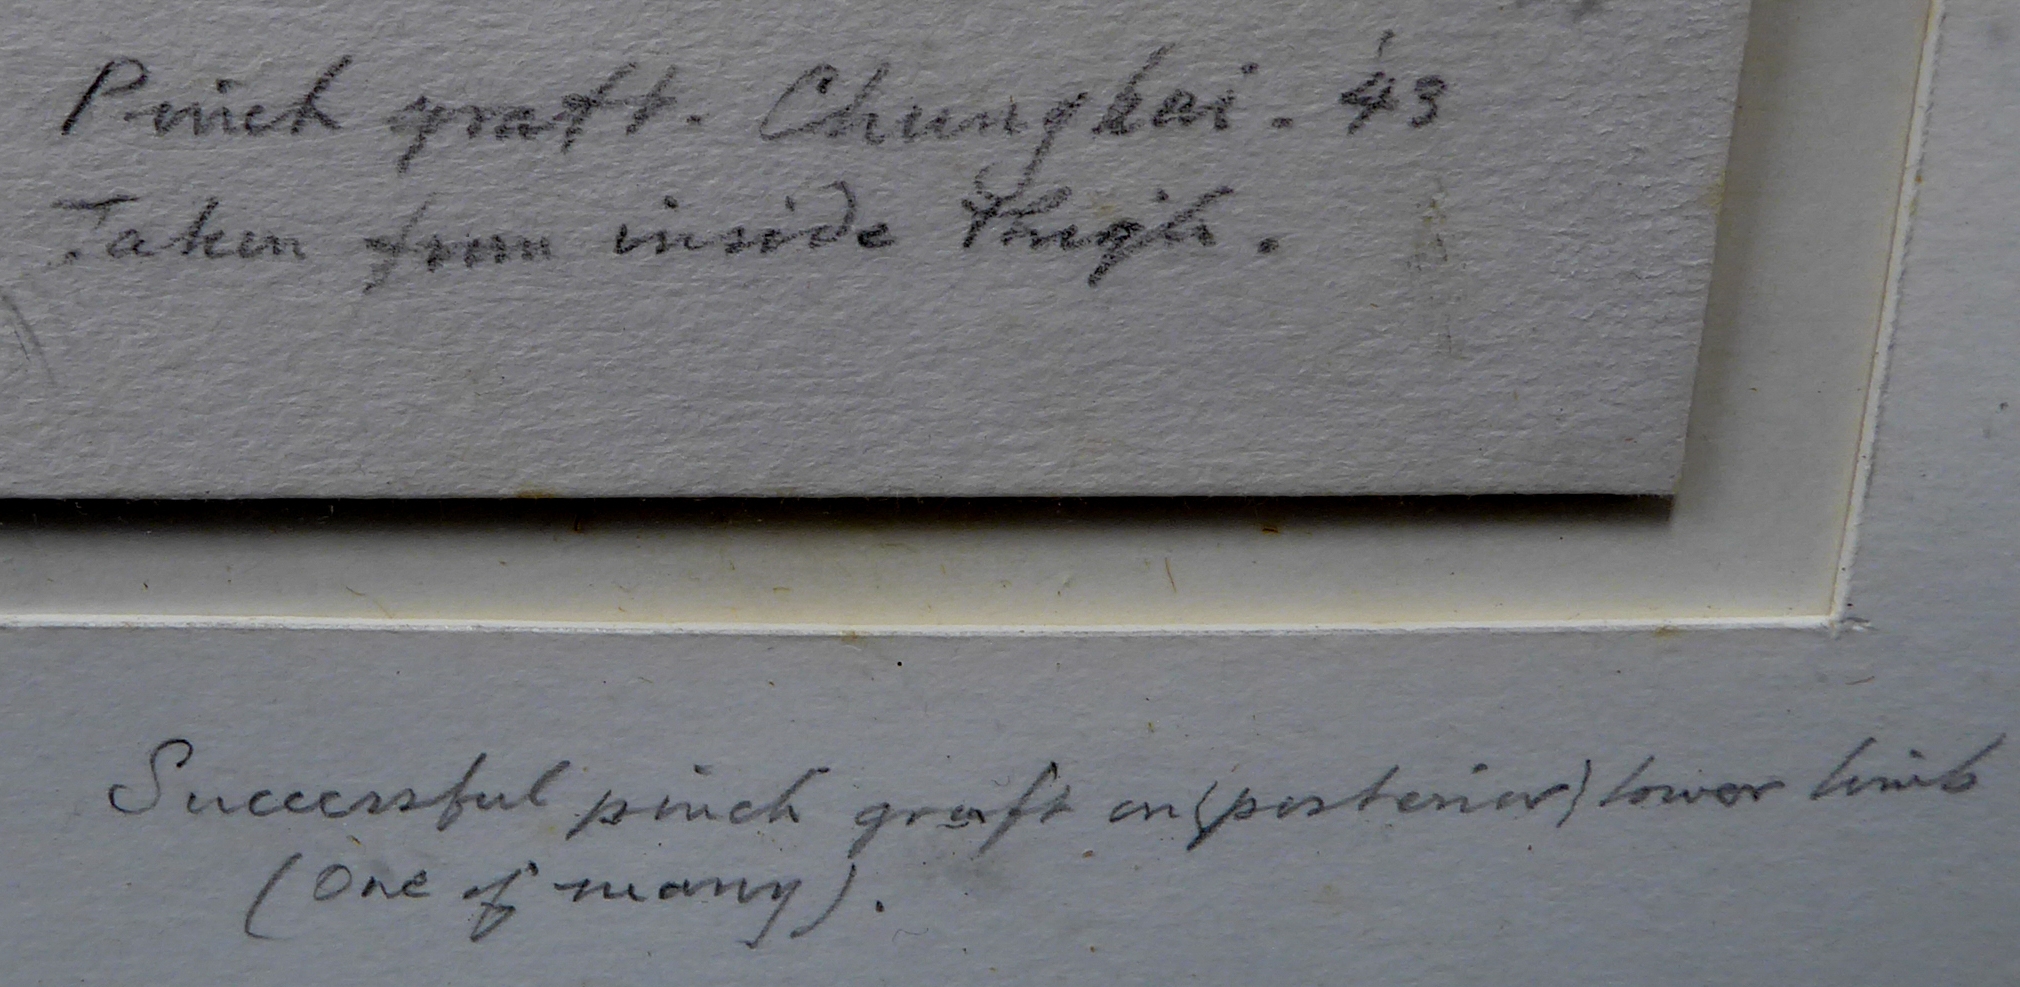 Pinch graft. Chungkai. '43
Taken from inside thigh.
Successful pinch graft on (posterior) lower limb
(One of many).